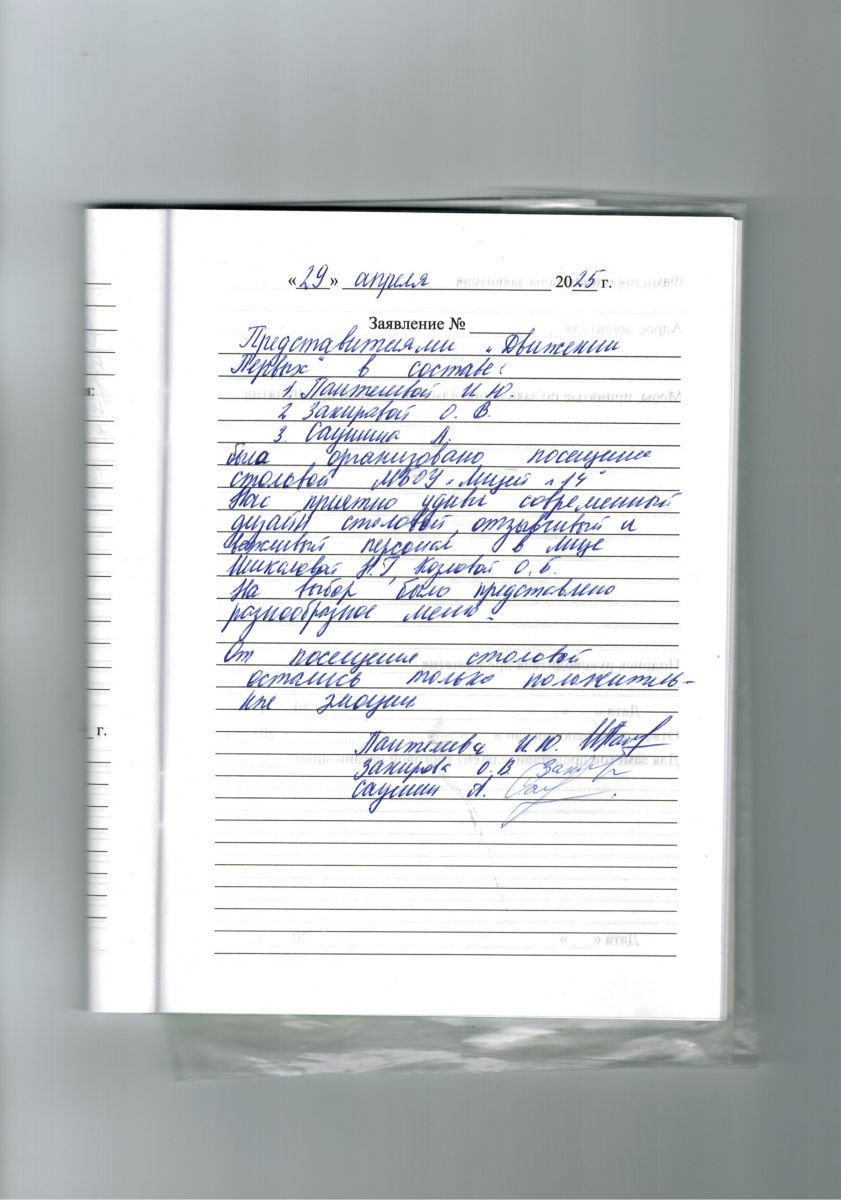 «29» апреля 2025 г.
Заявление №
Представителями „Движении
Первых“ в составе:
1. Пантелевой И.Ю.
2 Закировой О. В.
3. Саушина А.
была организовано посещение
столовой МБОУ „Лицей №14“
Нас приятно удивил современный
дизайн столовой, отзывчивый и
вежливый персонал, в лице
Шикаловой Н.Г, Козловой О.Б.
На выбор было представлено
разнообразное меню.
От посещения столовой
остались только положитель-
ные эмоции
Пантелева И.Ю.
Закирова О.В.
Саушин А.
г.